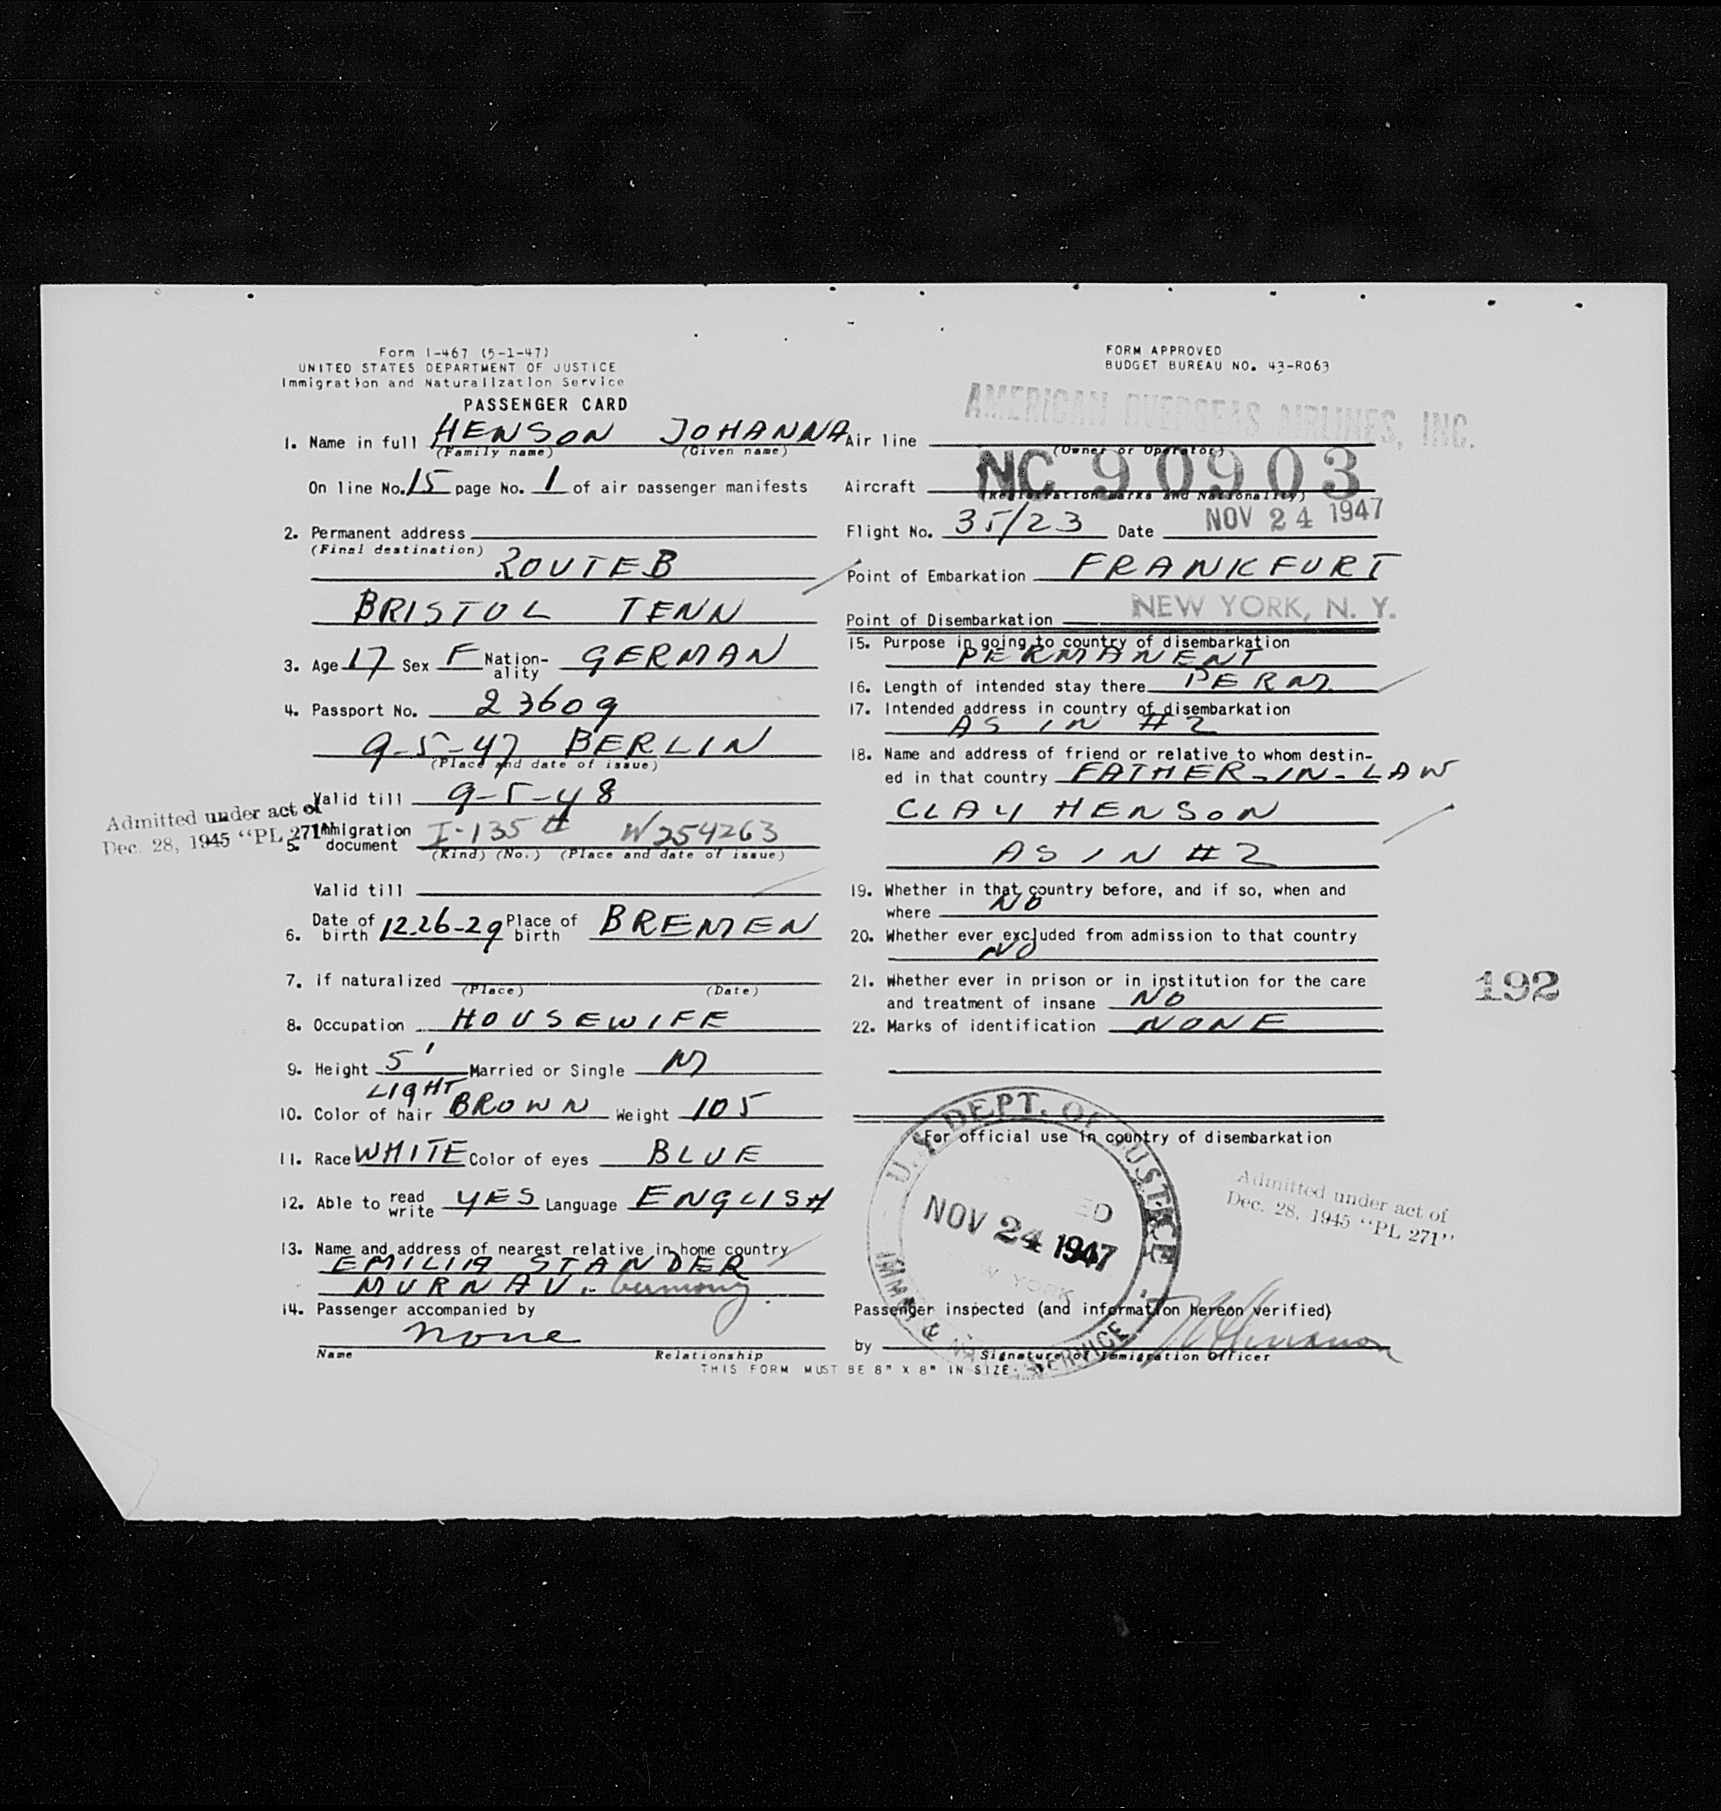 Form I-467 (5-1-47)
UNITED STATES DEPARTMENT OF JUSTICE
Immigration and Naturalization Service
PASSENGER CARD
1. Name in full HENSON JOHANNA
(Family name) (Given name)
On line No. 15 page No. 1 of air passenger manifests
2. Permanent address
(Final destination)
ROUTE B
BRISTOL TENN
3. Age 17 Sex F Nation-ality GERMAN
4. Passport No. 23609
9-5-47 BERLIN
(Place and date of issue)
Valid till 9-5-48
Admitted under act of
Dec. 28, 1945 "PL 271"
5. Immigration document I-135 # W254263
(Kind) (No.) (Place and date of issue)
Valid till
6. Date of birth 12-26-29 Place of birth BREMEN
7. If naturalized
(Place) (Date)
8. Occupation HOUSEWIFE
9. Height 5' Married or Single M
LIGHT
10. Color of hair BROWN Weight 105
11. Race WHITE Color of eyes BLUE
12. Able to read write YES Language ENGLISH
13. Name and address of nearest relative in home country
EMILIA STANDER
MURNAU. Germany.
14. Passenger accompanied by
None
Name Relationship
FORM APPROVED
BUDGET BUREAU NO. 43-R063
AMERICAN OVERSEAS AIRLINES, INC.
Air line
(Owner or Operator)
Aircraft NC 90903
(Registration marks and Nationality)
Flight No. 35/23 Date NOV 24 1947
Point of Embarkation FRANKFURT
Point of Disembarkation NEW YORK, N. Y.
15. Purpose in going to country of disembarkation
PERMANENT
16. Length of intended stay there PERM
17. Intended address in country of disembarkation
AS IN #2
18. Name and address of friend or relative to whom destin-
ed in that country FATHER-IN-LAW
CLAY HENSON
AS IN #2
19. Whether in that country before, and if so, when and
where NO
20. Whether ever excluded from admission to that country
NO
21. Whether ever in prison or in institution for the care
and treatment of insane NO
22. Marks of identification NONE
192
For official use in country of disembarkation
U. S. DEPT. OF JUSTICE
NOV 24 1947
IMMIG. & NAT. SERVICE
Admitted under act of
Dec. 28, 1945 "PL 271"
Passenger inspected (and information hereon verified)
by
Signature of Immigration Officer
THIS FORM MUST BE 8" X 8" IN SIZE.